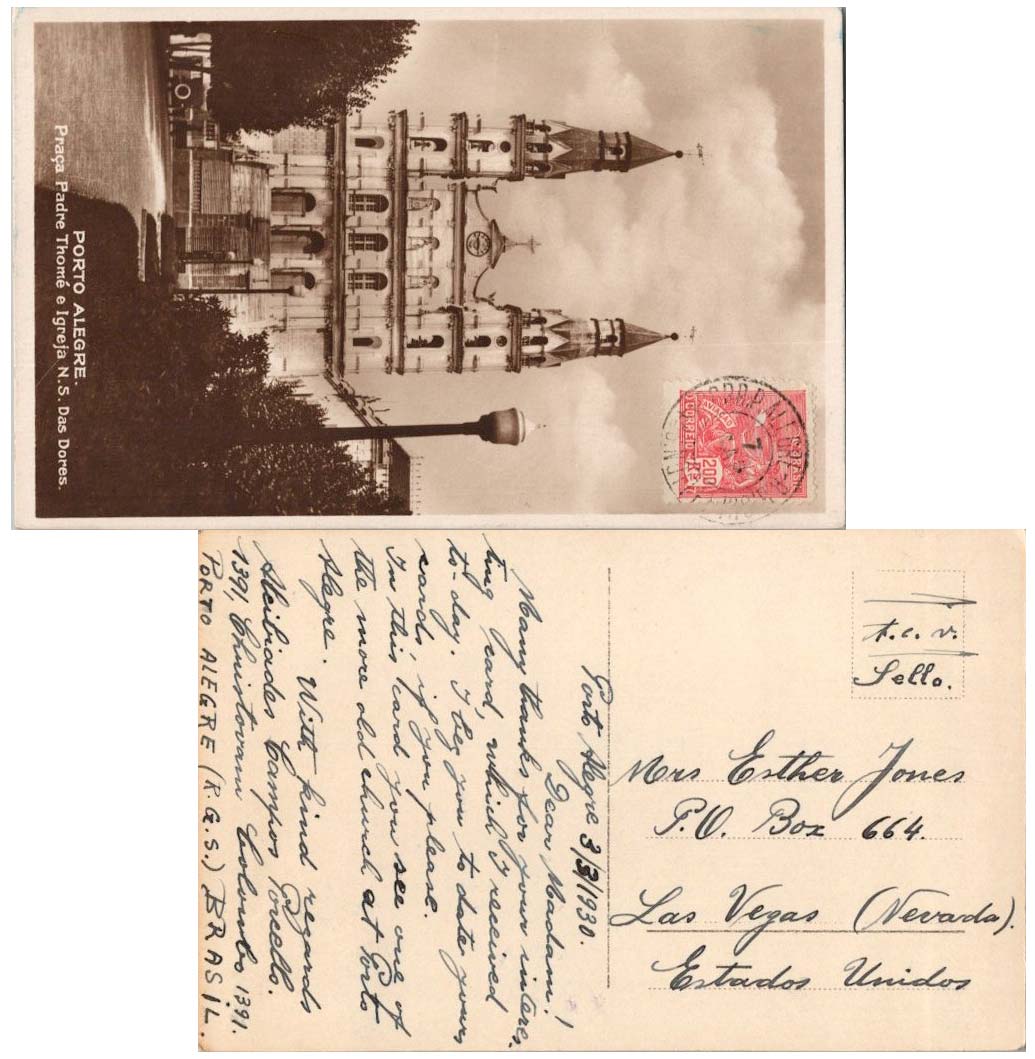 PORTO ALEGRE.
Praça Padre Thomé e Igreja N.S. Das Dores.
CORREIO
AVIAÇÃO
200
Rs
7
Porto Alegre 3/3/1930.
Dear Madam!
Many thanks for your interes-
ting card, which I received
to-day. I beg you to date yours
cards, if you please.
In this card you see one of
the more old church at Porto
Alegre. With kind regards
Alcibiades Campos Porcello.
1391, Christovam Colombo 1391.
PORTO ALEGRE (R.G.S.) BRASIL.
t.c.v.
Sello.
Mrs Esther Jones
P.O. Box 664.
Las Vegas (Nevada).
Estados Unidos